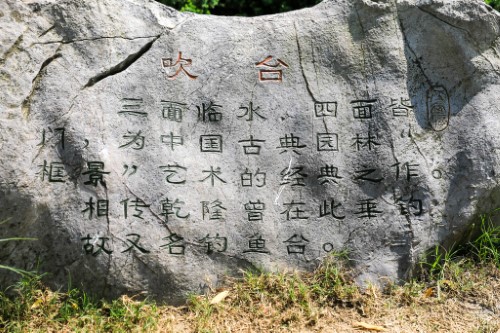 吹台
三面临水、四面皆
门,为中国古典园林“
框景”艺术的经典之作。
相传乾隆曾在此垂钓
故又名钓鱼台。